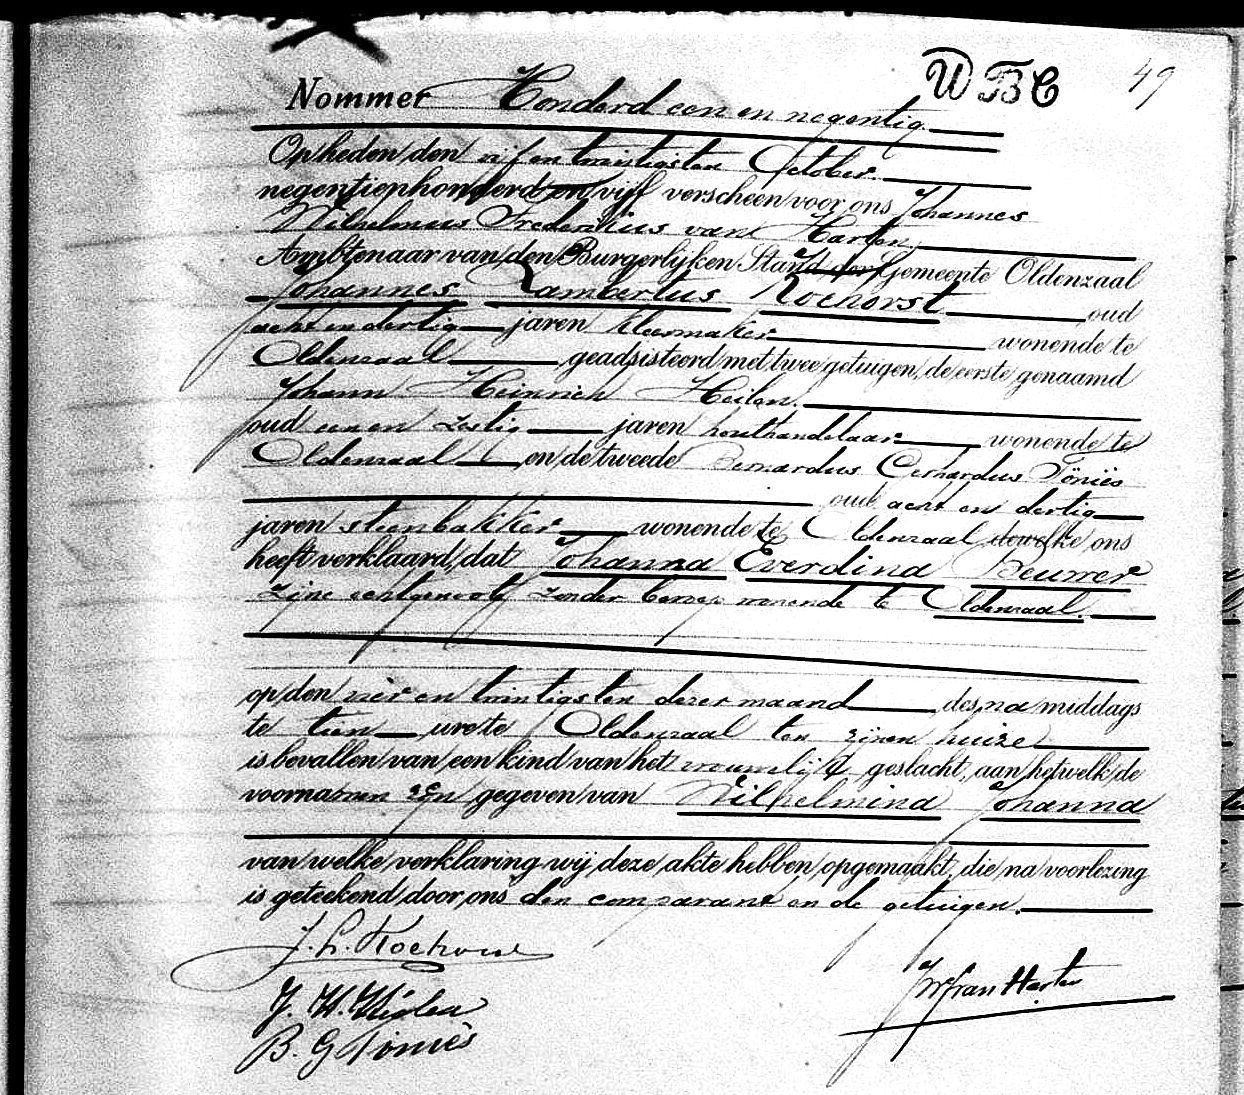 WBC 49
Nommer Honderd een en negentig
Op heden den vijf en twintigsten October
negentienhonderd en vijf verscheen voor ons Johannes
Wilhelmus Frederikus van Harten,
Ambtenaar van den Burgerlijken Stand der Gemeente Oldenzaal
Johannes Lambertus Kochorst oud
acht en dertig jaren kleermaker wonende te
Oldenzaal geadsisteerd met twee getuigen, de eerste genaamd
Johann Heinrich
oud een en zestig jaren houthandelaar wonende te
Oldenzaal en de tweede Bernardus Gerhardus Töniës
oud acht en dertig
jaren steenbakker wonende te Oldenzaal dewelke ons
heeft verklaard, dat Johanna Everdina Beuwer
zijne echtgenoot zonder beroep wonende te Oldenzaal.
op den vier en twintigsten dezer maand des na middags
te tien ure te Oldenzaal ten zijnen huize
is bevallen van een kind van het vrouwelijk geslacht, aan hetwelk de
voornamen zijn gegeven van Wilhelmina Johanna
van welke verklaring wij deze akte hebben opgemaakt, die na voorlezing
is geteekend door ons den comparant en de getuigen.
J. L. Kochorst
JWF van Harten
J. H.
B. G Töniës